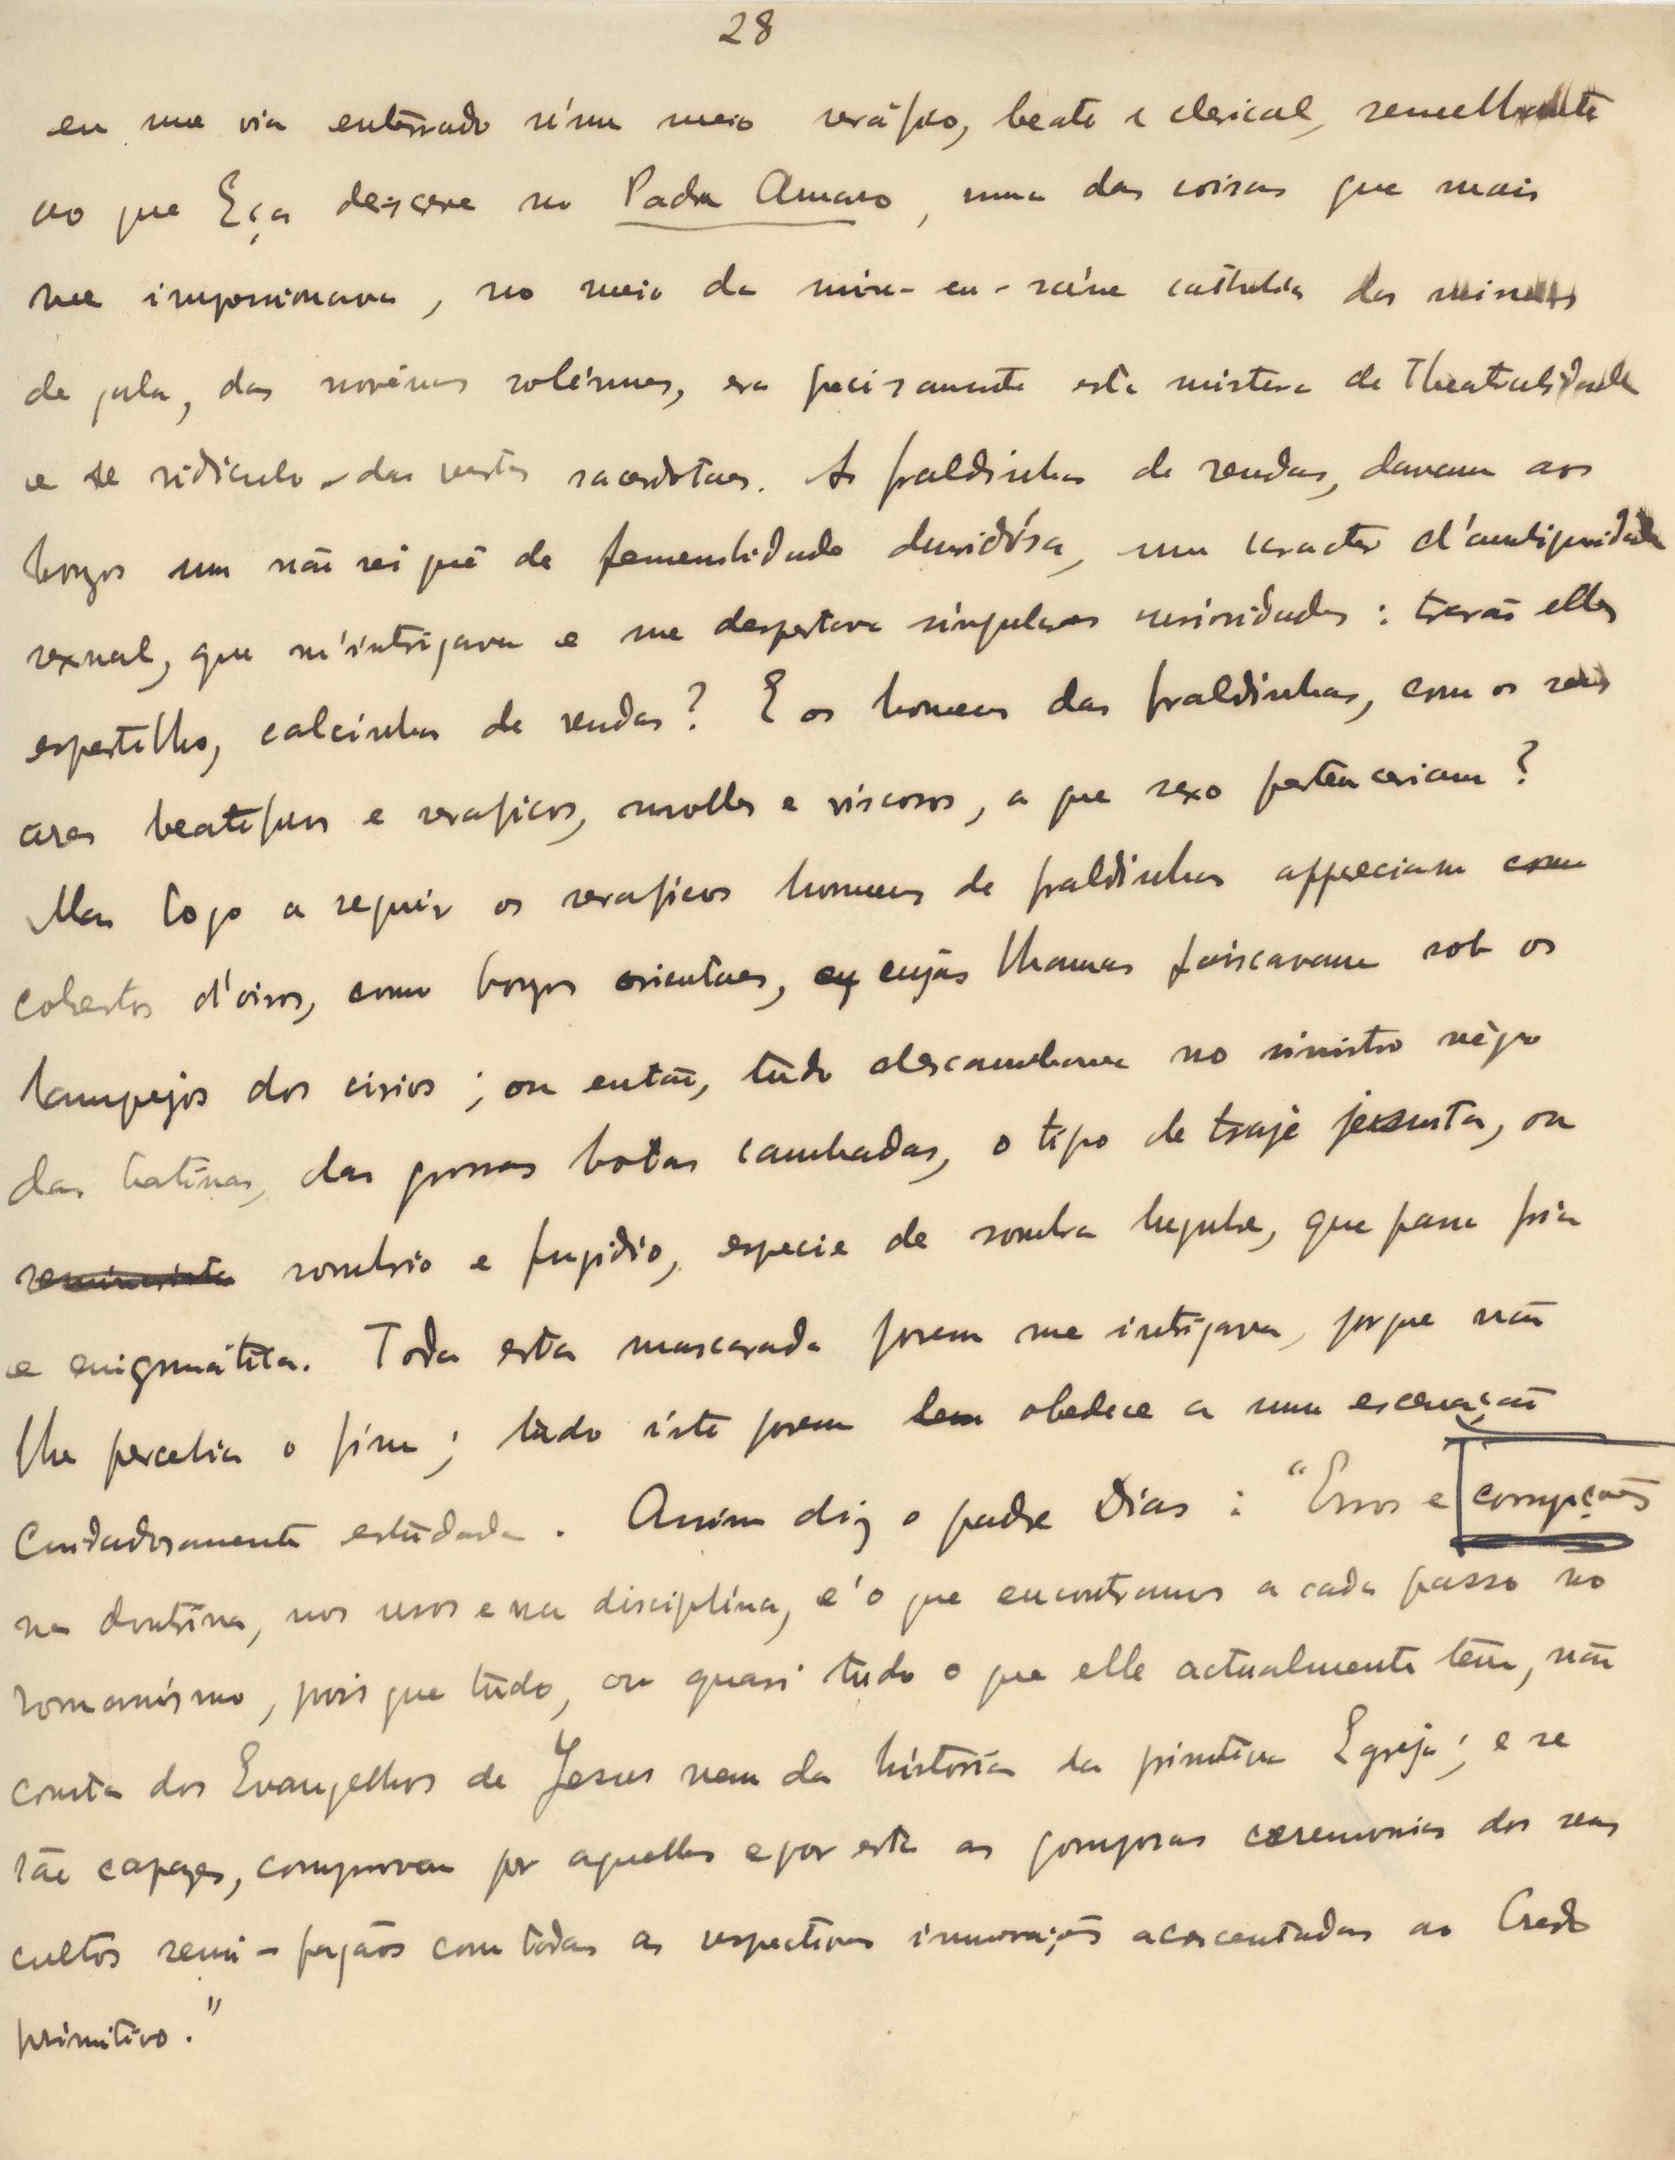 28
eu me via enterrado n'um meio seráfico, beato e clerical, semelhante
ao que Eça descreve no Padre Amaro, uma das coisas que mais
me impressionava, no meio da mise-en-scéne catholica das missas
de gala, das novénas solémnes, era precisamente esta mistura de theatralidade
e de ridiculo das vestes sacerdotaes. As fraldinhas de rendas, davam aos
bonzos um não sei quê de femenilidade duvidósa, um caracter d'ambiguidade
sexual, que m'intrigava e me despertava singulares curiosidades: trarão elles
espartilho, calcinhas de rendas? E os homens das fraldinhas, com os seus
ares beatificos e seraficos, molles e viscosos, a que sexo pertenceriam?
Mas logo a seguir os seraficos homens de fraldinhas appareciam
cobertos d'oiros, como bonzos orientaes, cujas lhamas faiscavam sob os
lampejos dos cirios; ou então, tudo descambava no sinistro négro
das batinas, das grossas botas cambadas, o tipo de traje jesuita, ou
sombrio e fugidio, especie de sombra lugubre, que passa fria
e enigmática. Toda esta mascarada porem me intrigava, porque não
lhe percebia o fim; tudo isto porem obedece a uma escenação
cuidadosamente estudada. Assim diz o padre Dias: "Erros e corrupções
na doutrina, nos usos e na disciplina, é o que encontramos a cada passo no
romanismo, pois que tudo, ou quasi tudo o que elle actualmente tem, não
consta dos Evangelhos de Jesus nem da historia da primitiva Egreja; e se
são capazes, comprovem por aquelles e por esta as pomposas ceremonias dos seus
cultos semi-pagãos com todas as respectivas innovações acrescentadas ao Credo
primitivo."